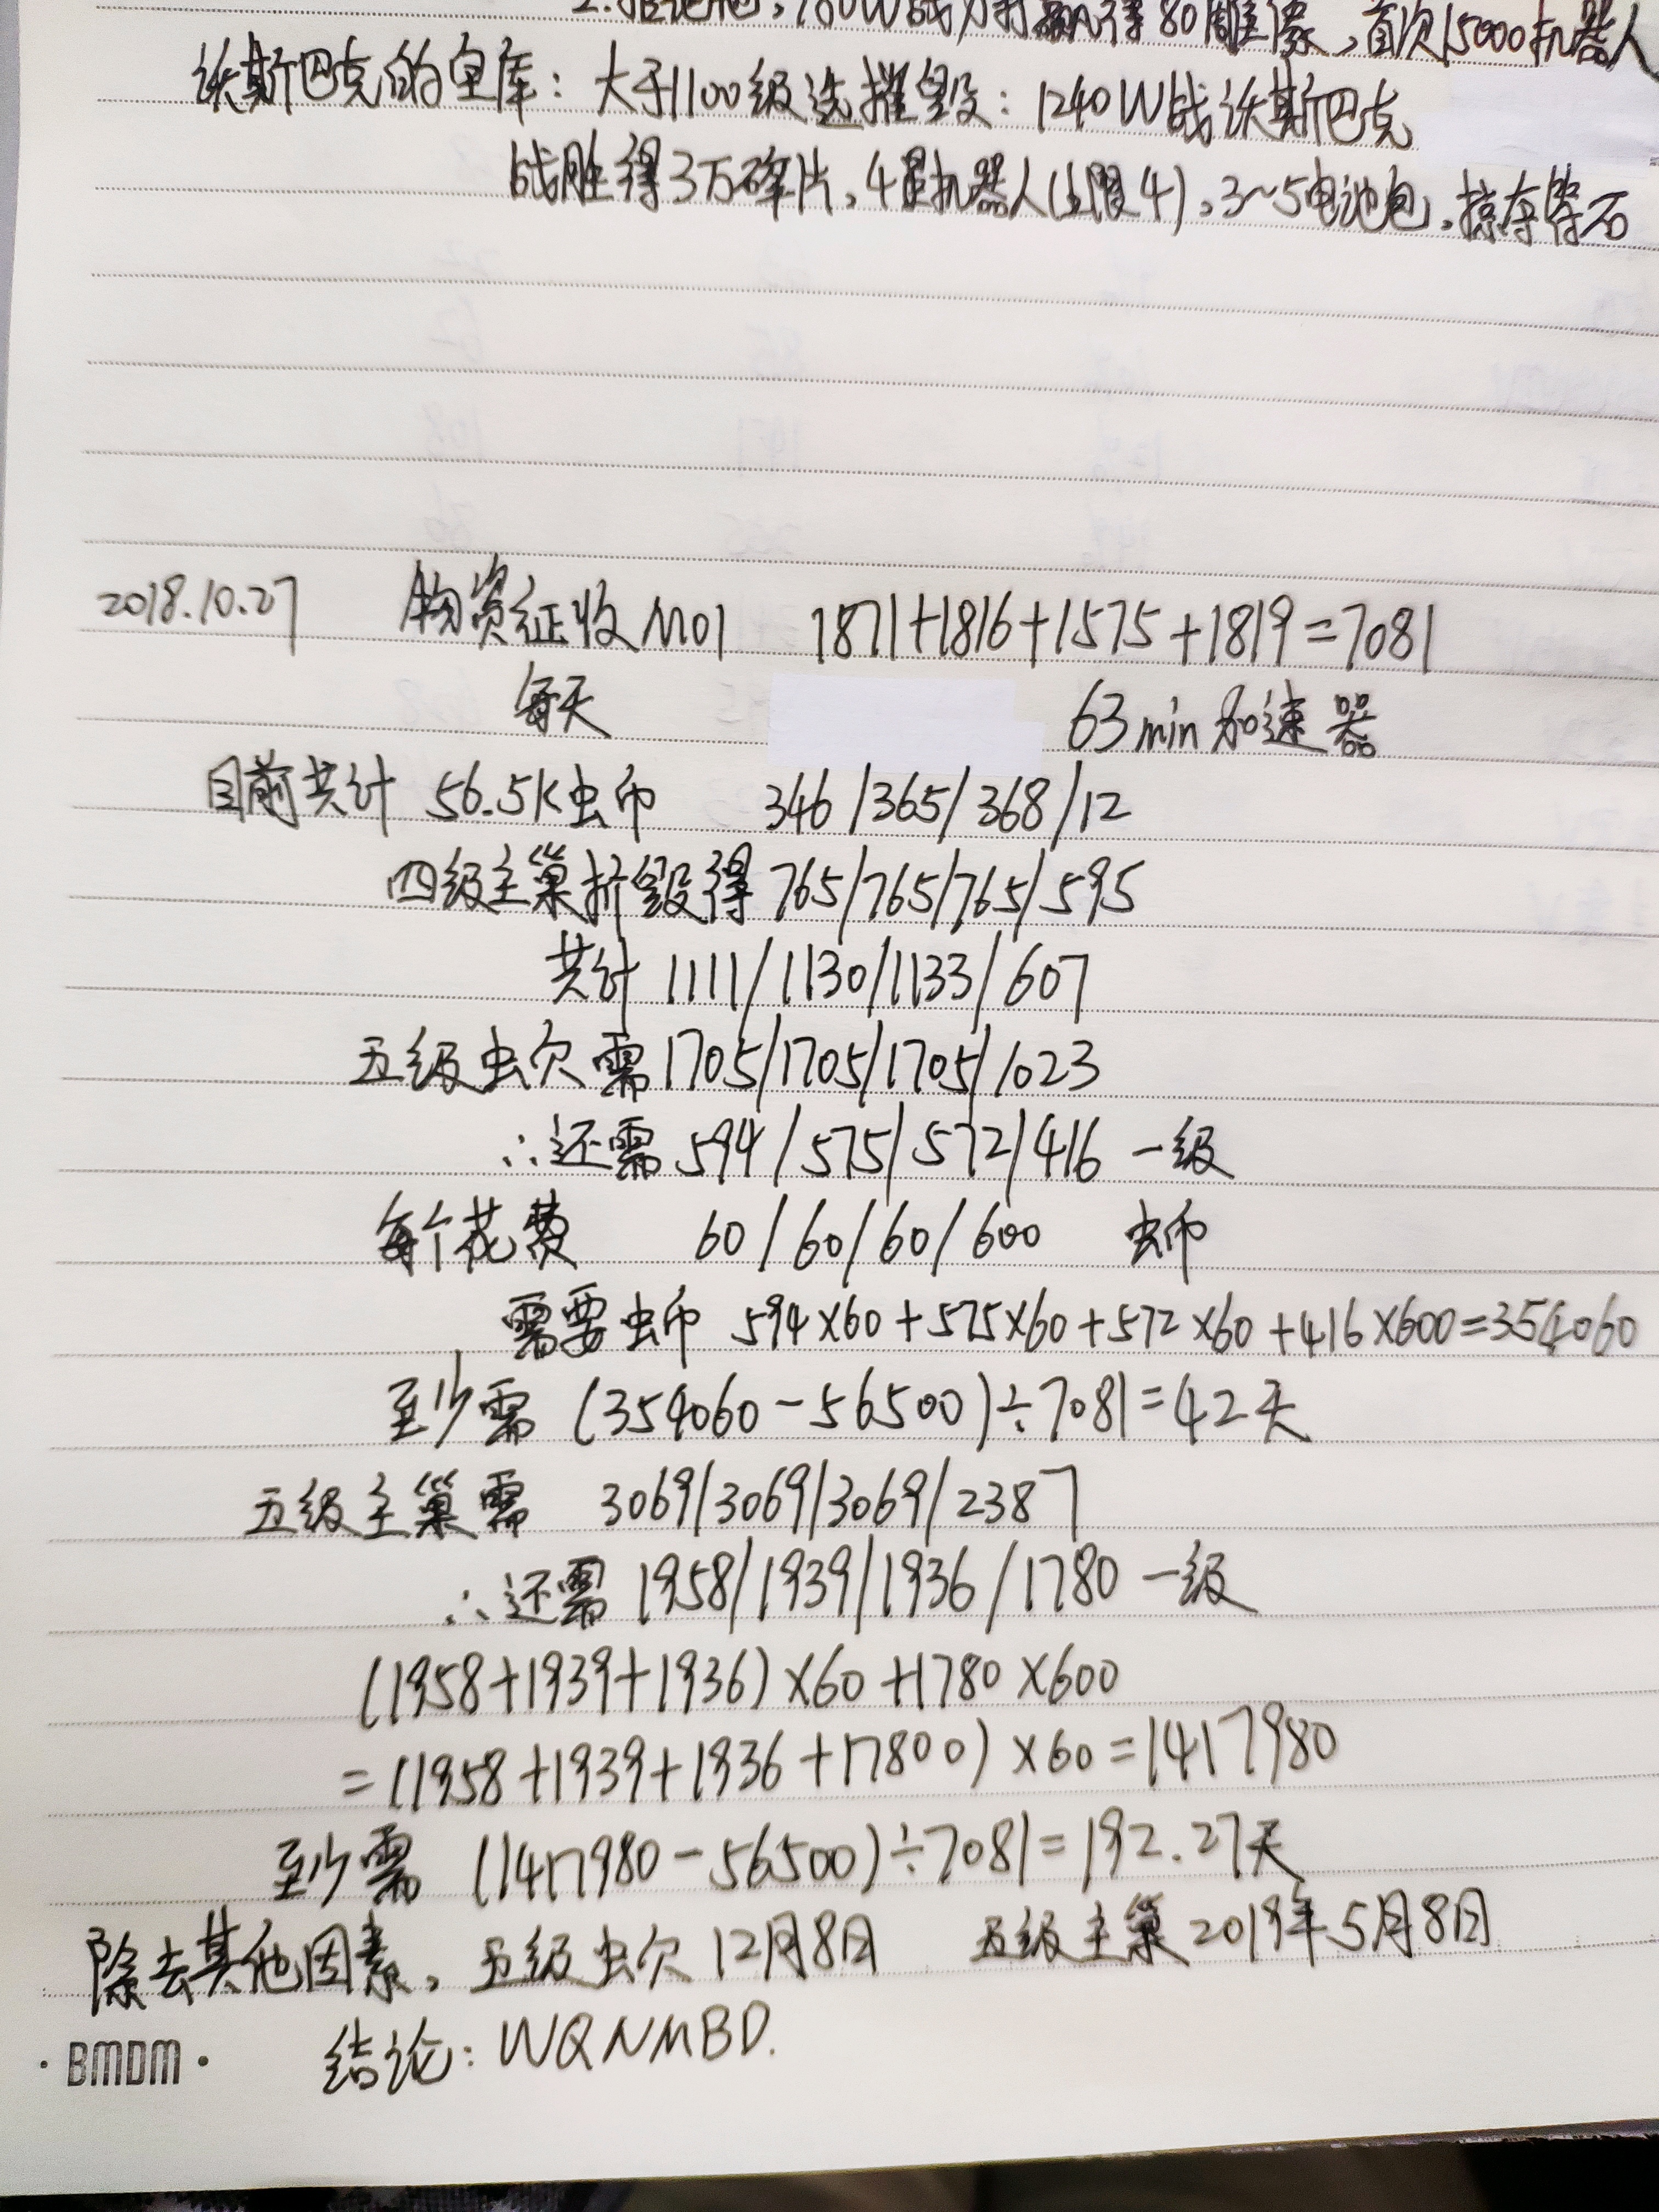 80雕像，首次15000机器人
沃斯巴克的宝库：大于1100级选摧毁：1240W战沃斯巴克
战胜得3万碎片，4星机器人(上限4)，3~5电池包，掠夺等石
2018.10.27 物资征收M01 1871+1816+1575+1819=7081
每天 63min加速器
目前共计 56.5K虫币 346/365/368/12
四级主巢拆毁得 765/765/765/595
共计 1111/1130/1133/607
五级虫穴需 1705/1705/1705/1023
∴还需 594/575/572/416 一级
每个花费 60/60/60/600 虫币
需要虫币 594×60+575×60+572×60+416×600=354060
至少需 (354060-56500)÷7081=42天
五级主巢需 3069/3069/3069/2387
∴还需 1958/1939/1936/1780 一级
(1958+1939+1936)×60+1780×600
=(1958+1939+1936+17800)×60=1417980
至少需 (1417980-56500)÷7081=192.27天
除去其他因素，五级虫穴 12月8日 五级主巢 2019年5月8日
·BMDM· 结论：WQNMBD.